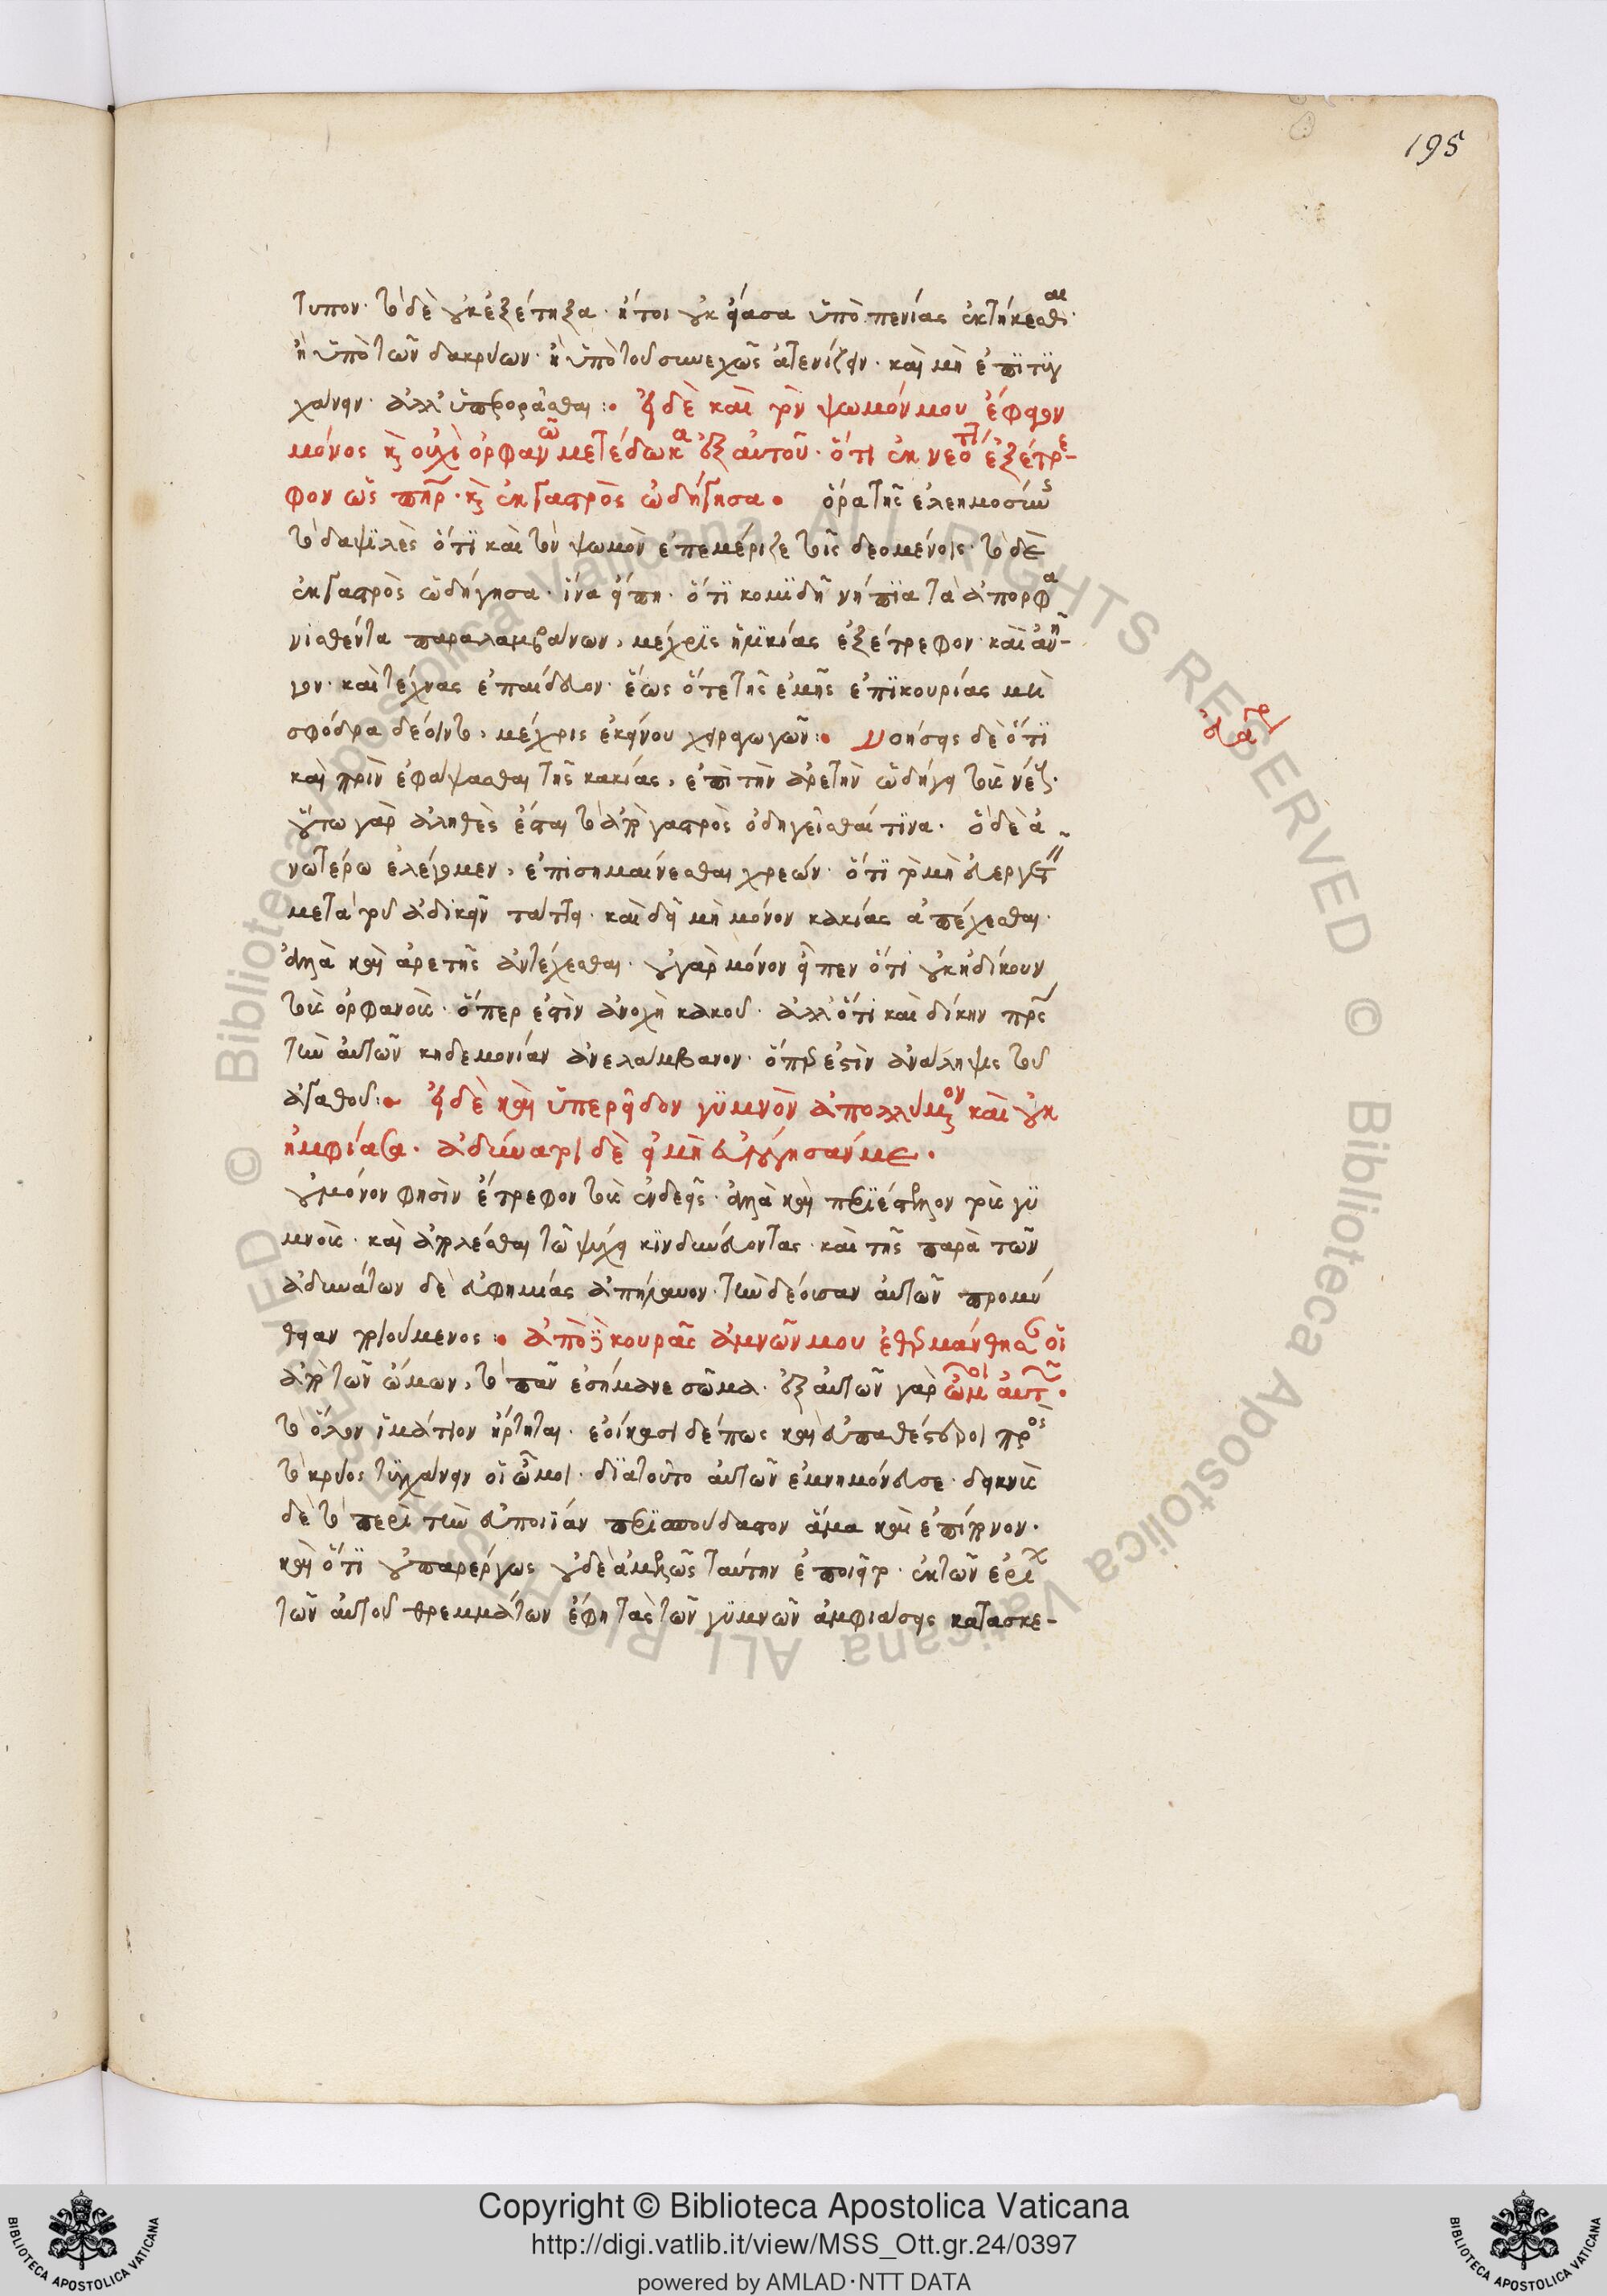 195
τυπον· τὸ δὲ οὐκ ἐξέτηξα· ἤτοι οὐκ εἴασα ὑπὸ πενίας ἐκτήκεσθαι·
ἢ ὑπὸ τῶν δακρύων· ἢ ὑπὸ τοῦ συνεχῶς ἀτενίζειν· καὶ μὴ ἐπιτυγ
χάνειν· ἀλλ' ὑπερορᾶσθαι: εἰ δὲ καὶ τὸν ψωμόν μου ἔφαγον
μόνος κ(αὶ) οὐχὶ ὀρφανῶ μετέδωκα ἐξ αὐτοῦ· ὅτι ἐκ νεότητ(ος) ἐξέτρε-
φον ὡς π(ατ)ήρ· κ(αὶ) ἐκ γαστρὸς ὡδήγησα· ὅρα τῆς ἐλεημοσύνης
τὸ δαψιλὲς ὅτι καὶ τὸν ψωμὸν ἐπεμέριζε τοῖς δεομένοις· τὸ δὲ
ἐκ γαστρὸς ὡδήγησα· ἵνα εἴπη· ὅτι κομιδῆ νήπια τὰ ἀπορφα
νισθέντα παραλαμβάνων, μέχρις ἡλικίας ἐξέτρεφον· καὶ ἀνῆ-
γον· καὶ τέχνας ἐπαίδευον· ἕως ὅτε τῆς ἐμῆς ἐπικουρίας μὴ
σφόδρα δέοιντο, μέχρις ἐκείνου χειραγωγῶν: νοήσεις δὲ ὅτι
καὶ πρὶν ἐφάψασθαι τῆς κακίας, ἐπὶ τὴν ἀρετὴν ὡδήγει τοὺς νέους·
οὕτω γὰρ ἀληθὲς ἔσται τὸ ἀπὸ γαστρὸς ὁδηγεῖσθαί τινα· ὃ δὲ ἀ
νωτέρω ἐλέγομεν, ἐπισημαίνεσθαι χρεών· ὅτι τὸ μὴ εὐεργετεῖν
μετὰ τοῦ ἀδικεῖν τάττει· καὶ δεῖ μὴ μόνον κακίας ἀπέχεσθαι·
ἀλλὰ καὶ ἀρετῆς ἀντέχεσθαι· οὐ γὰρ μόνον εἶπεν ὅτι οὐκ ἠδίκουν
τοὺς ὀρφανούς· ὅπερ ἐστὶν ἀνοχὴ κακοῦ· ἀλλ' ὅτι καὶ δίκην π(ατ)ρὸς
τὴν αὐτῶν κηδεμονίαν ἀνελάμβανον· ὅπερ ἐστὶν ἀνάληψις τοῦ
ἀγαθοῦ: εἰ δὲ καὶ ὑπερεῖδον γυμνὸν ἀπολλύμενον καὶ οὐκ
ἠμφίασα· ἀδύνατοι δὲ εἰ μὴ εὐλόγησάν με·
οὐ μόνον φησὶν ἔτρεφον τοὺς ἐνδεεῖς· ἀλλὰ καὶ περιέστελλον τοὺς γυ
μνοὺς· καὶ ἀπολέσθαι τῶ ψύχει κινδυνεύοντας· καὶ τῆς παρὰ τῶν
ἀδυνάτων δὲ εὐφημίας ἀπήλαυον· τὴν δέουσαν αὐτῶν προμή
θειαν ποιούμενος: ἀπὸ δὲ κουρᾶς ἀμνῶν μου ἐθερμάνθησαν οἱ
ἀπὸ τῶν ὤμων, τὸ πᾶν ἐσήμανε σῶμα· ἐξ αὐτῶν γὰρ ὦμοι αὐτῶν·
τὸ ὅλον ἱμάτιον ἤρτηται· ἐοίκασι δέ πως καὶ εὐπαθέστεροι πρὸς
τὸ κρύος τυγχάνειν οἱ ὦμοι· διὰ τοῦτο αὐτῶν ἐμνημόνευσε· δεικνὺς
δὲ τὸ περὶ τὴν εὐποιίαν περισπούδαστον ἅμα καὶ ἐπίπονον·
καὶ ὅτι οὐ παρέργως οὐδὲ ἀμελῶς ταύτην ἐποιεῖτο· ἐκ τῶν ἐρίων
τῶν αὐτοῦ θρεμμάτων ἔφη τὰς τῶν γυμνῶν ἀμφιάσεις κατασκε-
Copyright © Biblioteca Apostolica Vaticana
http://digi.vatlib.it/view/MSS_Ott.gr.24/0397
powered by AMLAD·NTT DATA
BIBLIOTECA APOSTOLICA VATICANA
BIBLIOTECA APOSTOLICA VATICANA
© Biblioteca Apostolica Vaticana ALL RIGHTS RESERVED © Biblioteca Apostolica Vaticana ALL RIGHTS RESERVED